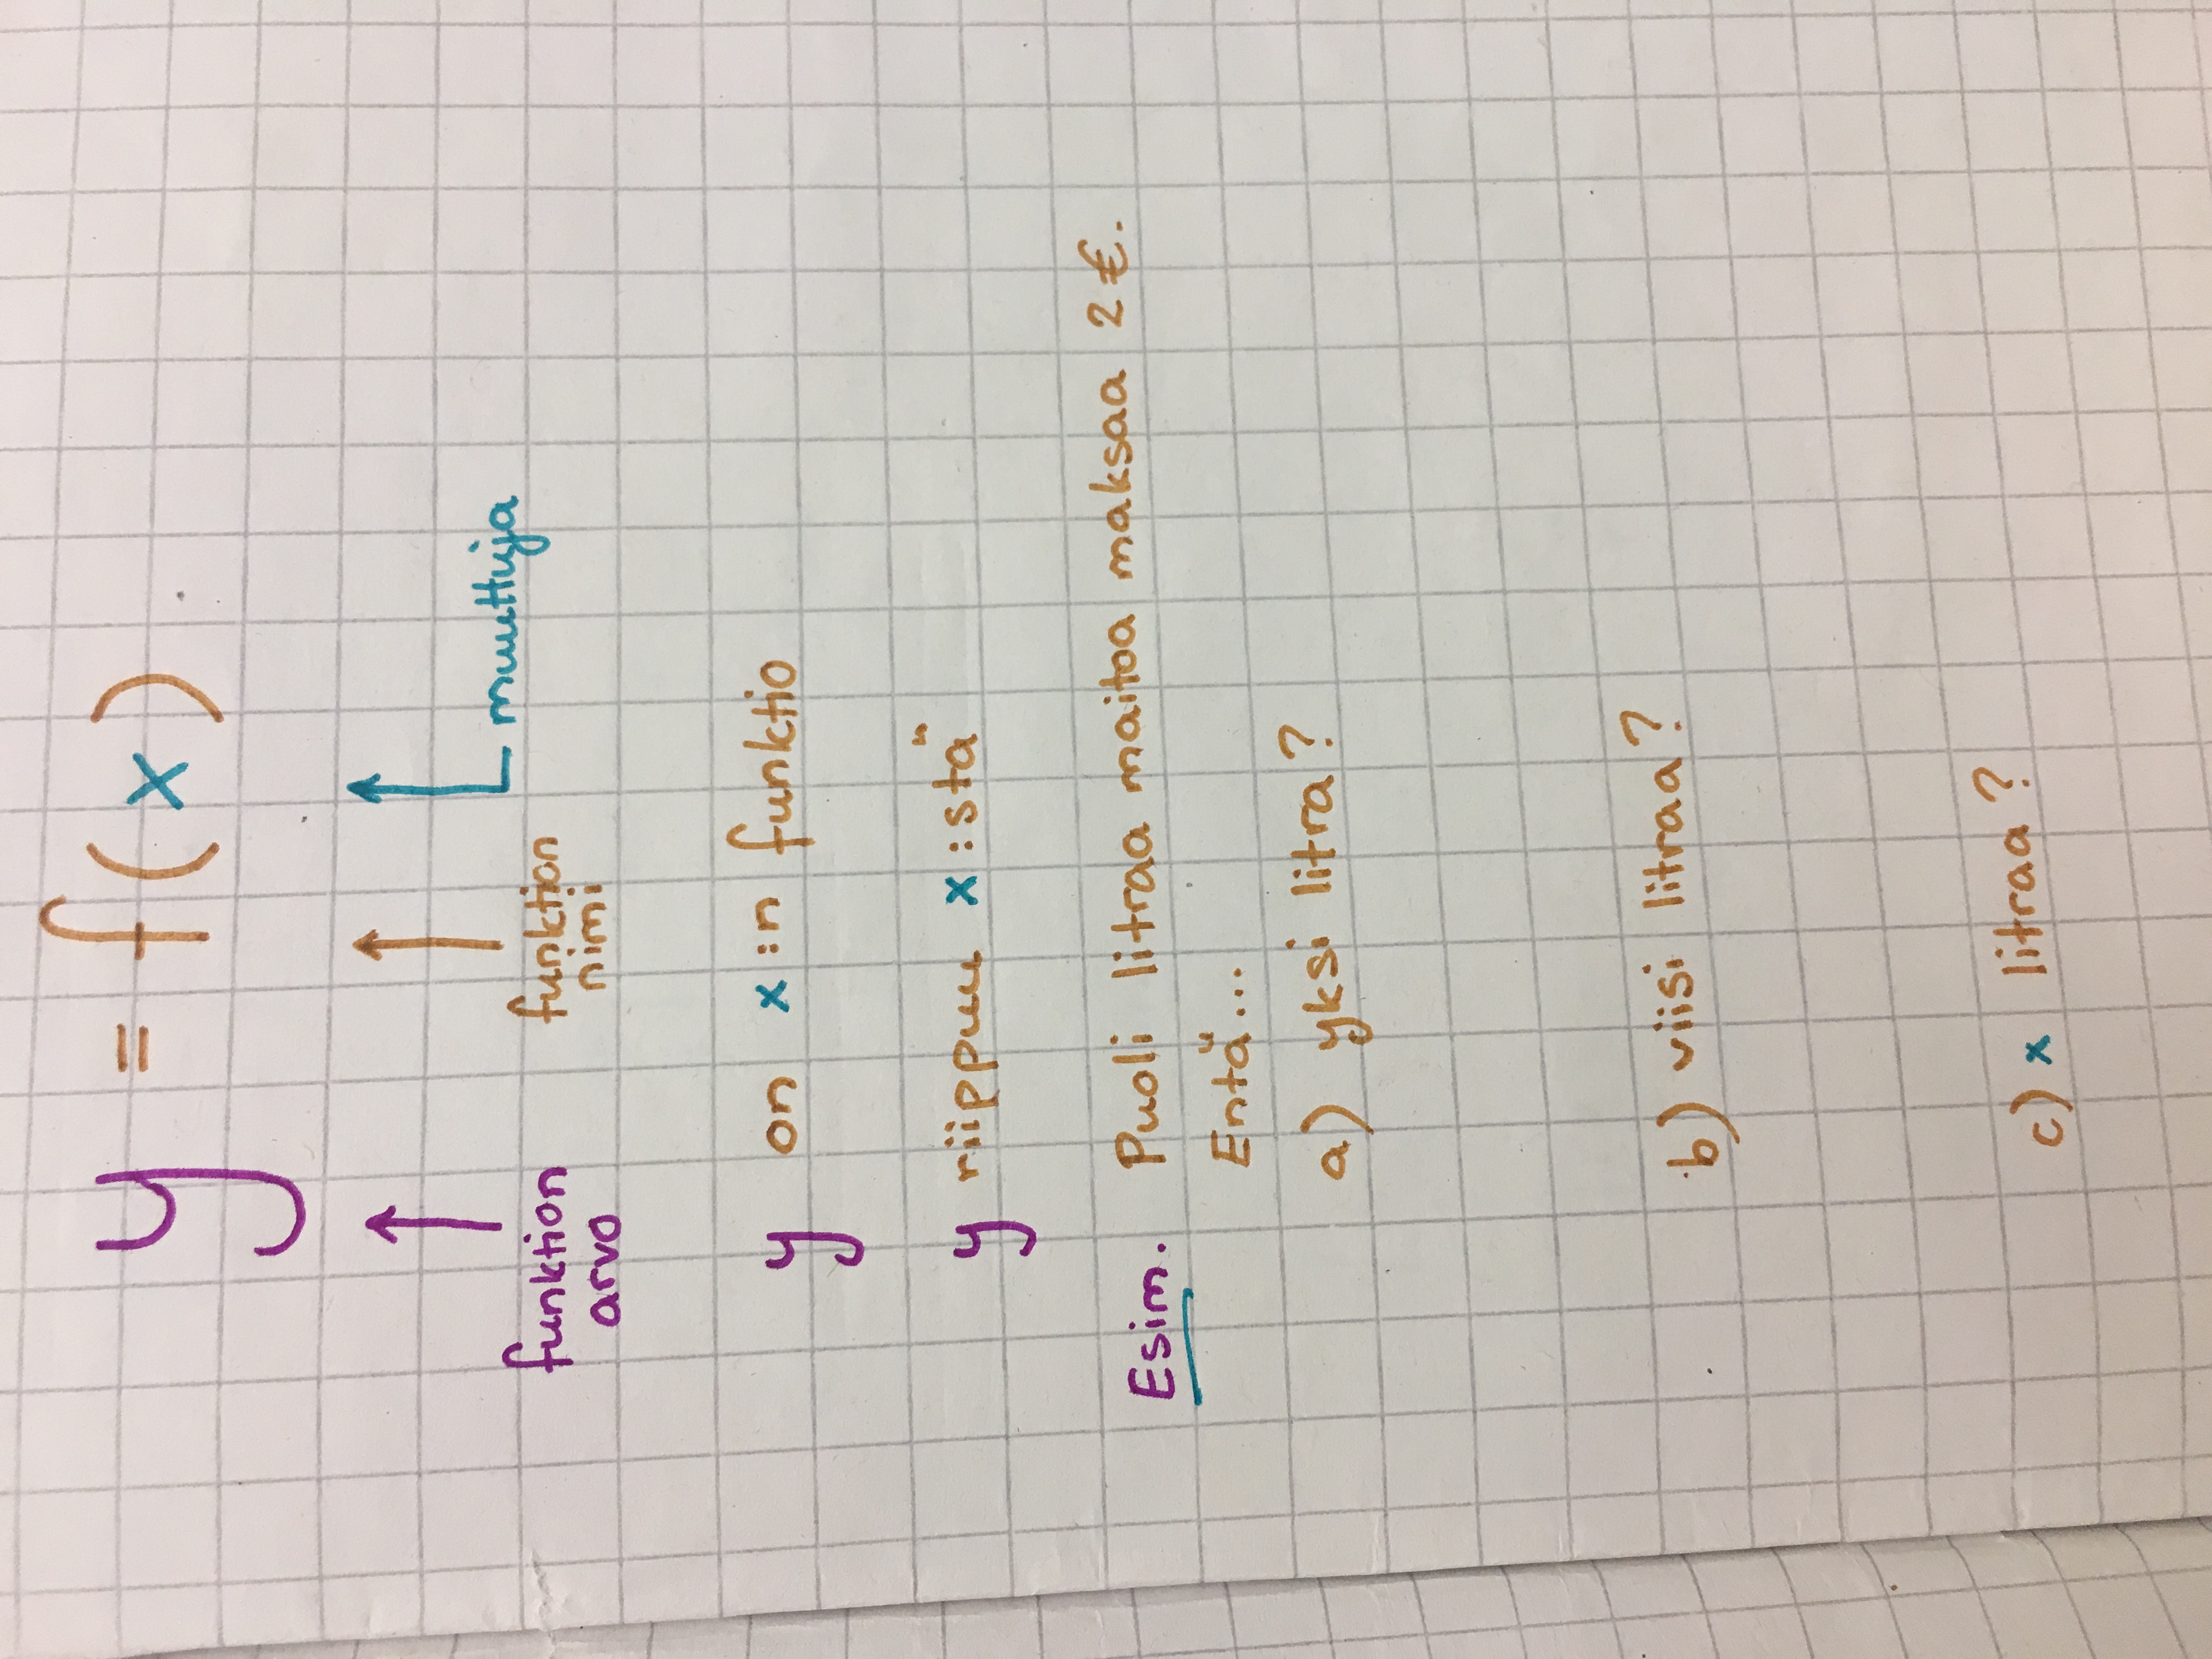 y = f(x)
muuttuja
funktion funktion
arvo nimi
y on x:n funktio
y riippuu x:stä
Esim. Puoli litraa maitoa maksaa 2 €.
Entä...
a) yksi litra?
b) viisi litraa?
c) x litraa?